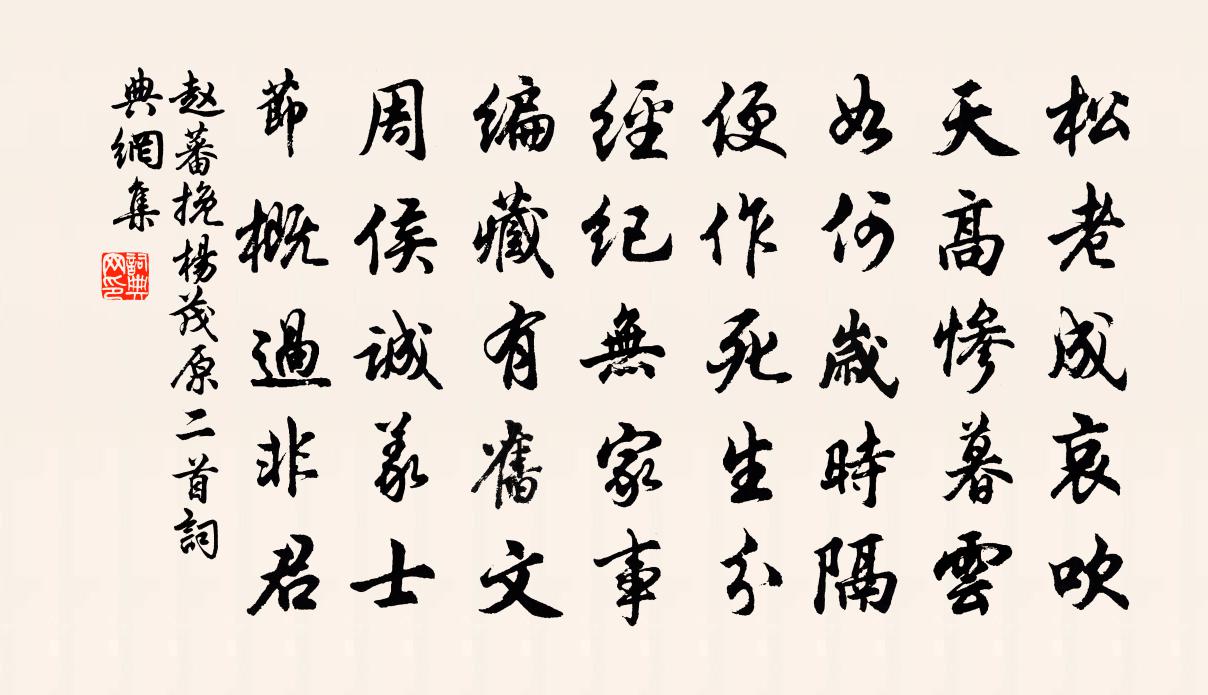 松老成哀吹
天高慘暮雲
如何歲時隔
便作死生分
經紀無家事
編藏有舊文
周侯誠義士
節概過非君
赵蕃挽楊茂原二首詞
典網集
詞典
网印